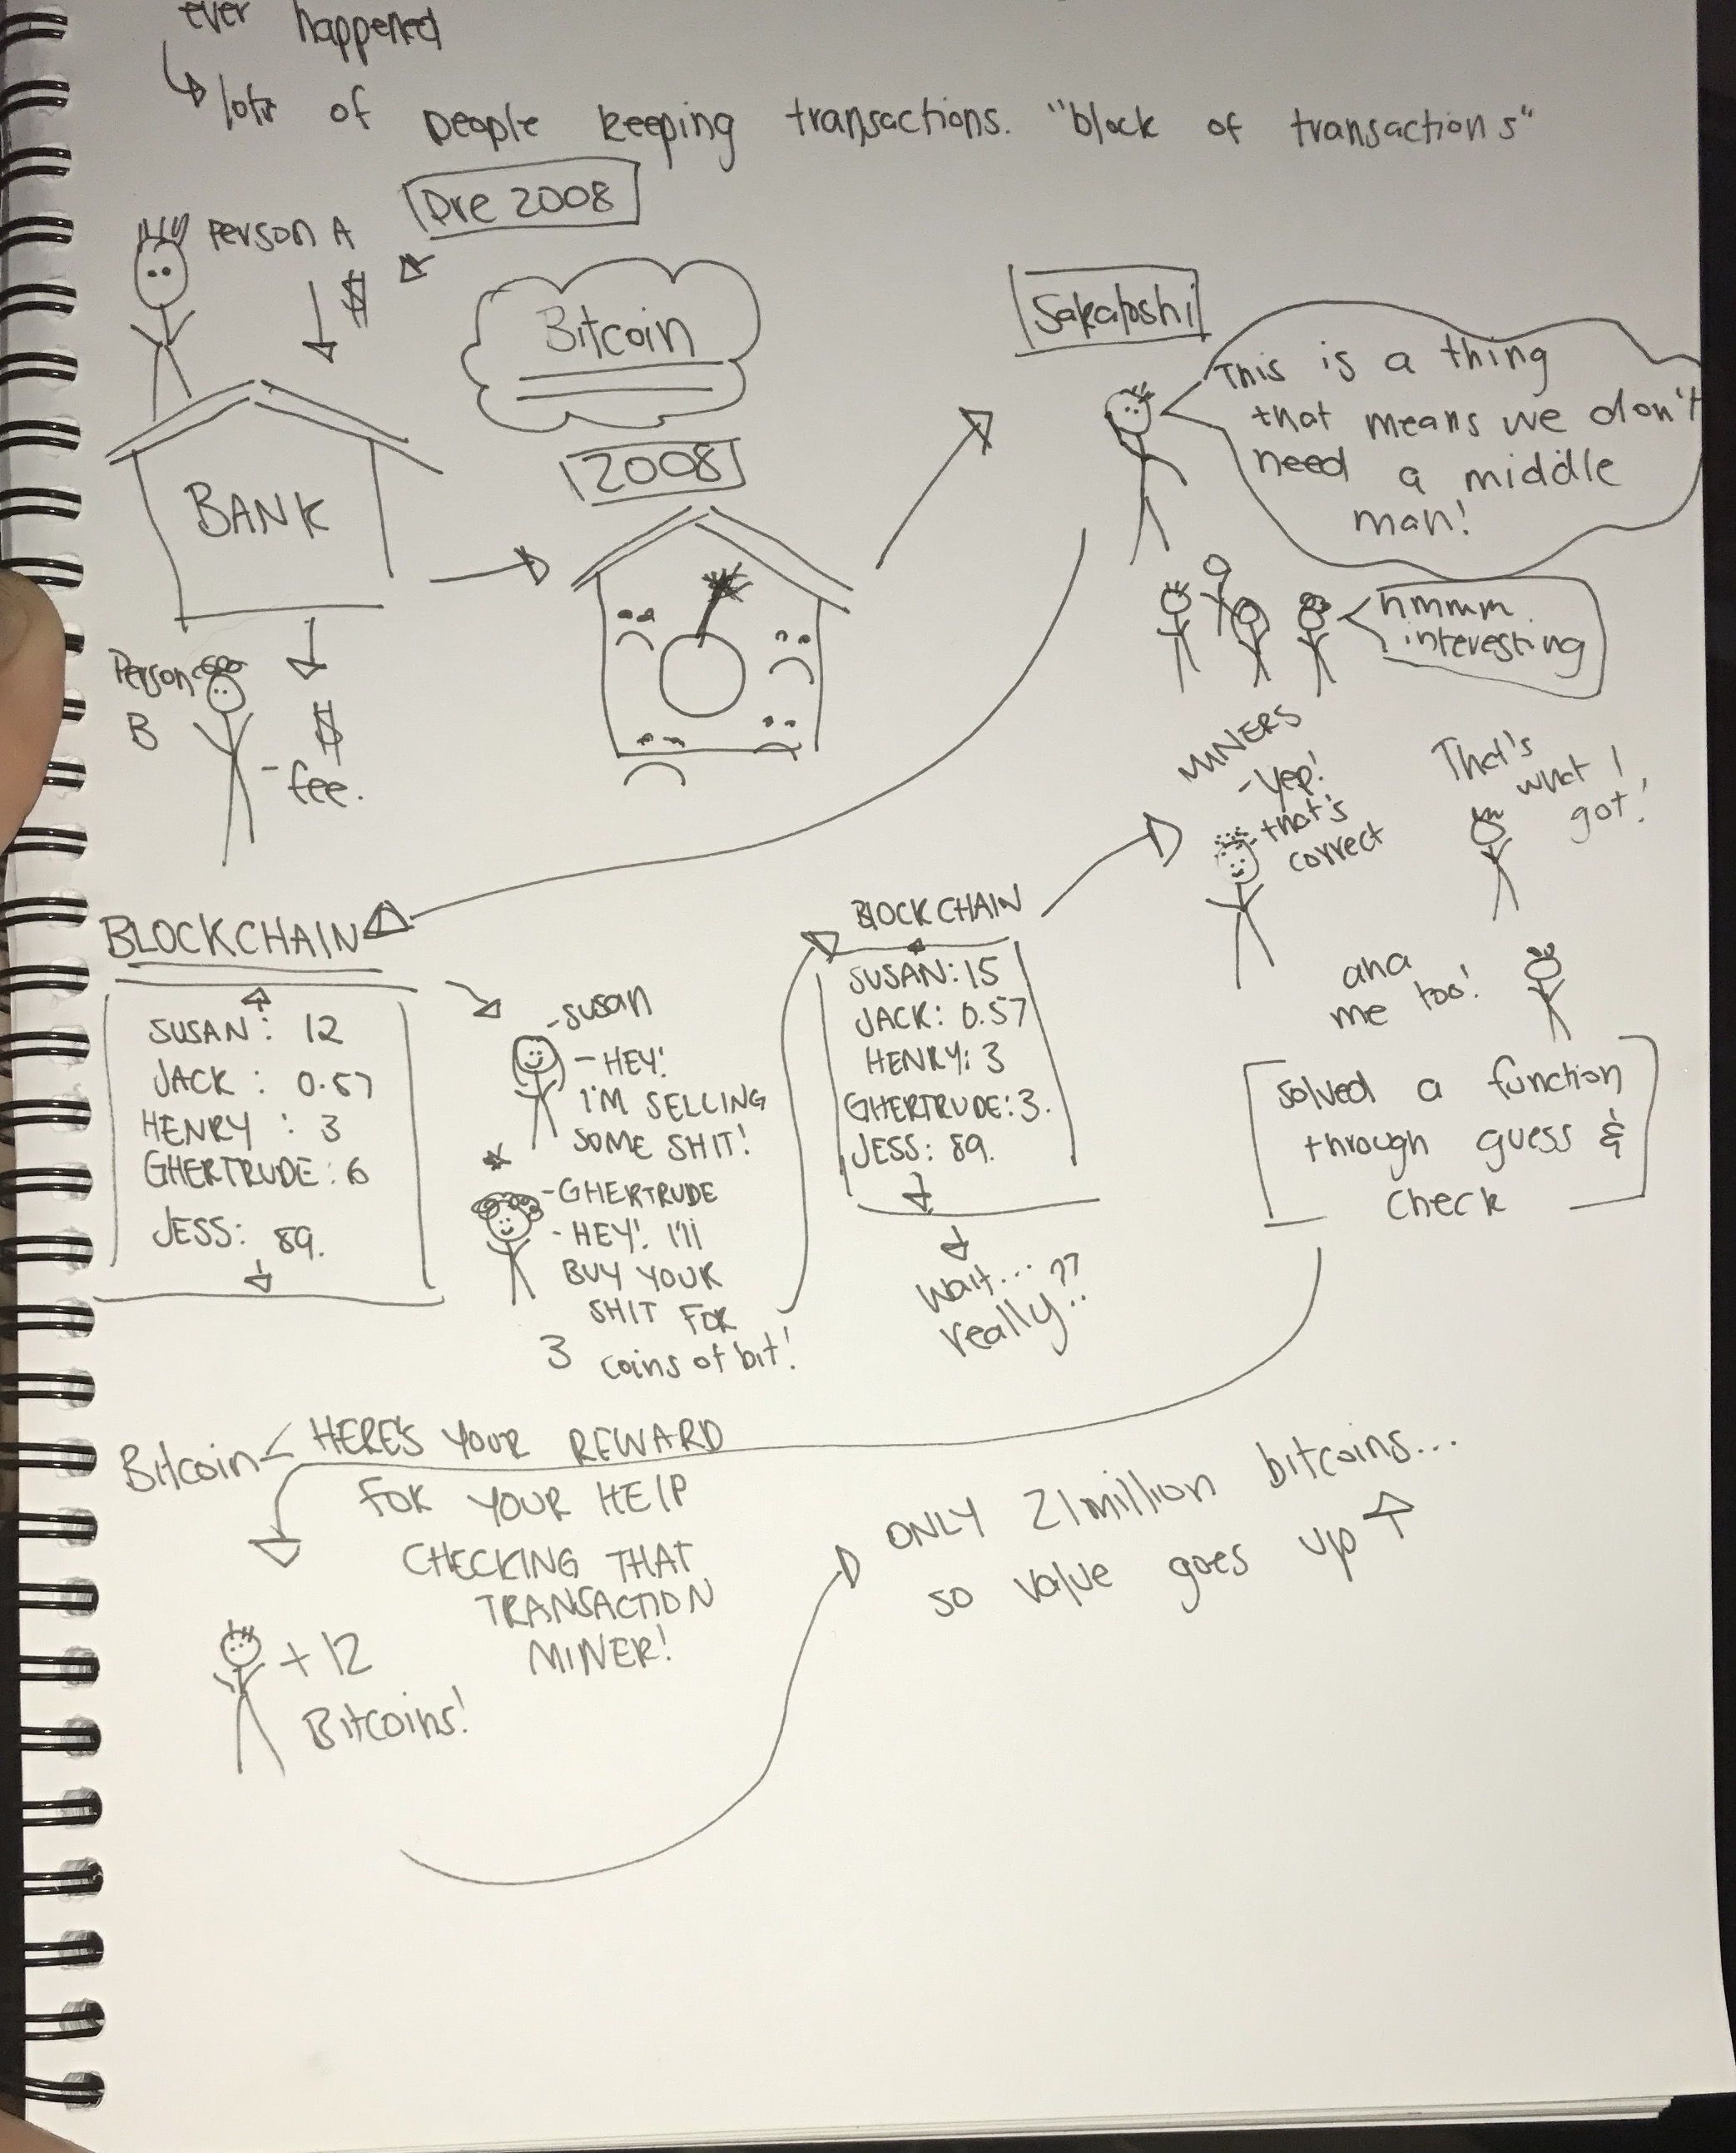 ever happened
lots of people keeping transactions. "block of transactions"
Pre 2008
Person A
$
Bitcoin
BANK
2008
Person
B
$
- fee.
Sakatoshi
This is a thing
that means we don't
need a middle
man!
hmmm
interesting
MINERS
- Yep!
that's
correct
That's
what I
got!
aha
me too!
solved a function
through guess &
check
BLOCKCHAIN
SUSAN: 12
JACK: 0.57
HENRY: 3
GHERTRUDE: 6
JESS: 89.
- susan
- HEY!
I'M SELLING
SOME SHIT!
- GHERTRUDE
- HEY! I'll
BUY YOUR
SHIT FOR
3 coins of bit!
BLOCKCHAIN
SUSAN: 15
JACK: 0.57
HENRY: 3
GHERTRUDE: 3.
JESS: 89.
wait...
really??
Bitcoin < HERE'S YOUR REWARD
FOR YOUR HELP
CHECKING THAT
TRANSACTION
MINER!
+ 12
Bitcoins!
ONLY 21million bitcoins...
so value goes up